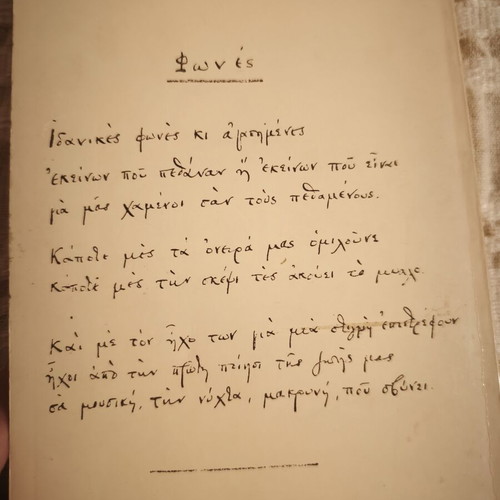 Φωνές
Ἰδανικὲς φωνὲς κι ἀγαπημένες
ἐκείνων ποῦ πεθάναν ἤ ἐκείνων ποῦ εἶναι
γιὰ μᾶς χαμένοι σὰν τοὺς πεθαμένους.
Κάποτε μὲς τὰ ὄνειρά μας ὁμιλοῦνε
κάποτε μὲς τὴν σκέψι τὲς ἀκούει τὸ μυαλό.
Καὶ μὲ τὸν ἦχο των γιὰ μιὰ στιγμὴ ἐπιστρέφουν
ἦχοι ἀπὸ τὴν πρώτη ποίησι τῆς ζωῆς μας
σὰ μουσική, τὴν νύχτα, μακρυνή, ποῦ σβύνει.